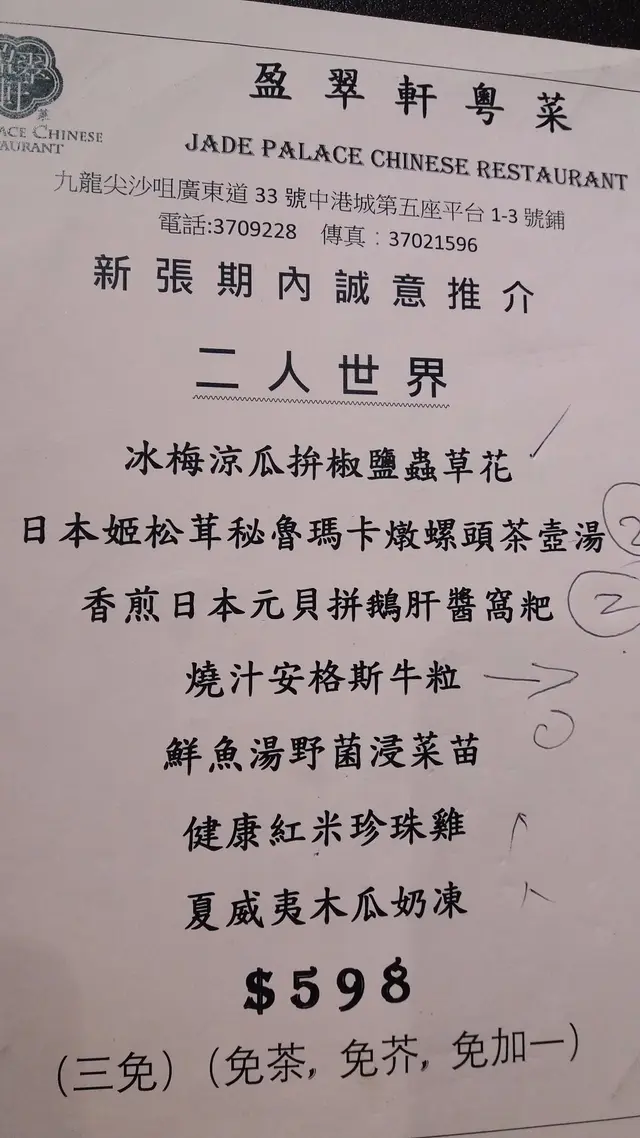 盈翠軒粵菜
ACE CHINESE
AURANT
JADE PALACE CHINESE RESTAURANT
九龍尖沙咀廣東道 33 號中港城第五座平台 1-3 號鋪
電話:3709228 傳真：37021596
新張期內誠意推介
二人世界
冰梅涼瓜拚椒鹽蟲草花
日本姬松茸秘魯瑪卡燉螺頭茶壺湯 2
香煎日本元貝拼鵝肝醬窩粑 2
燒汁安格斯牛粒
鮮魚湯野菌浸菜苗
健康紅米珍珠雞
夏威夷木瓜奶凍
$598
(三免) (免茶, 免芥, 免加一)